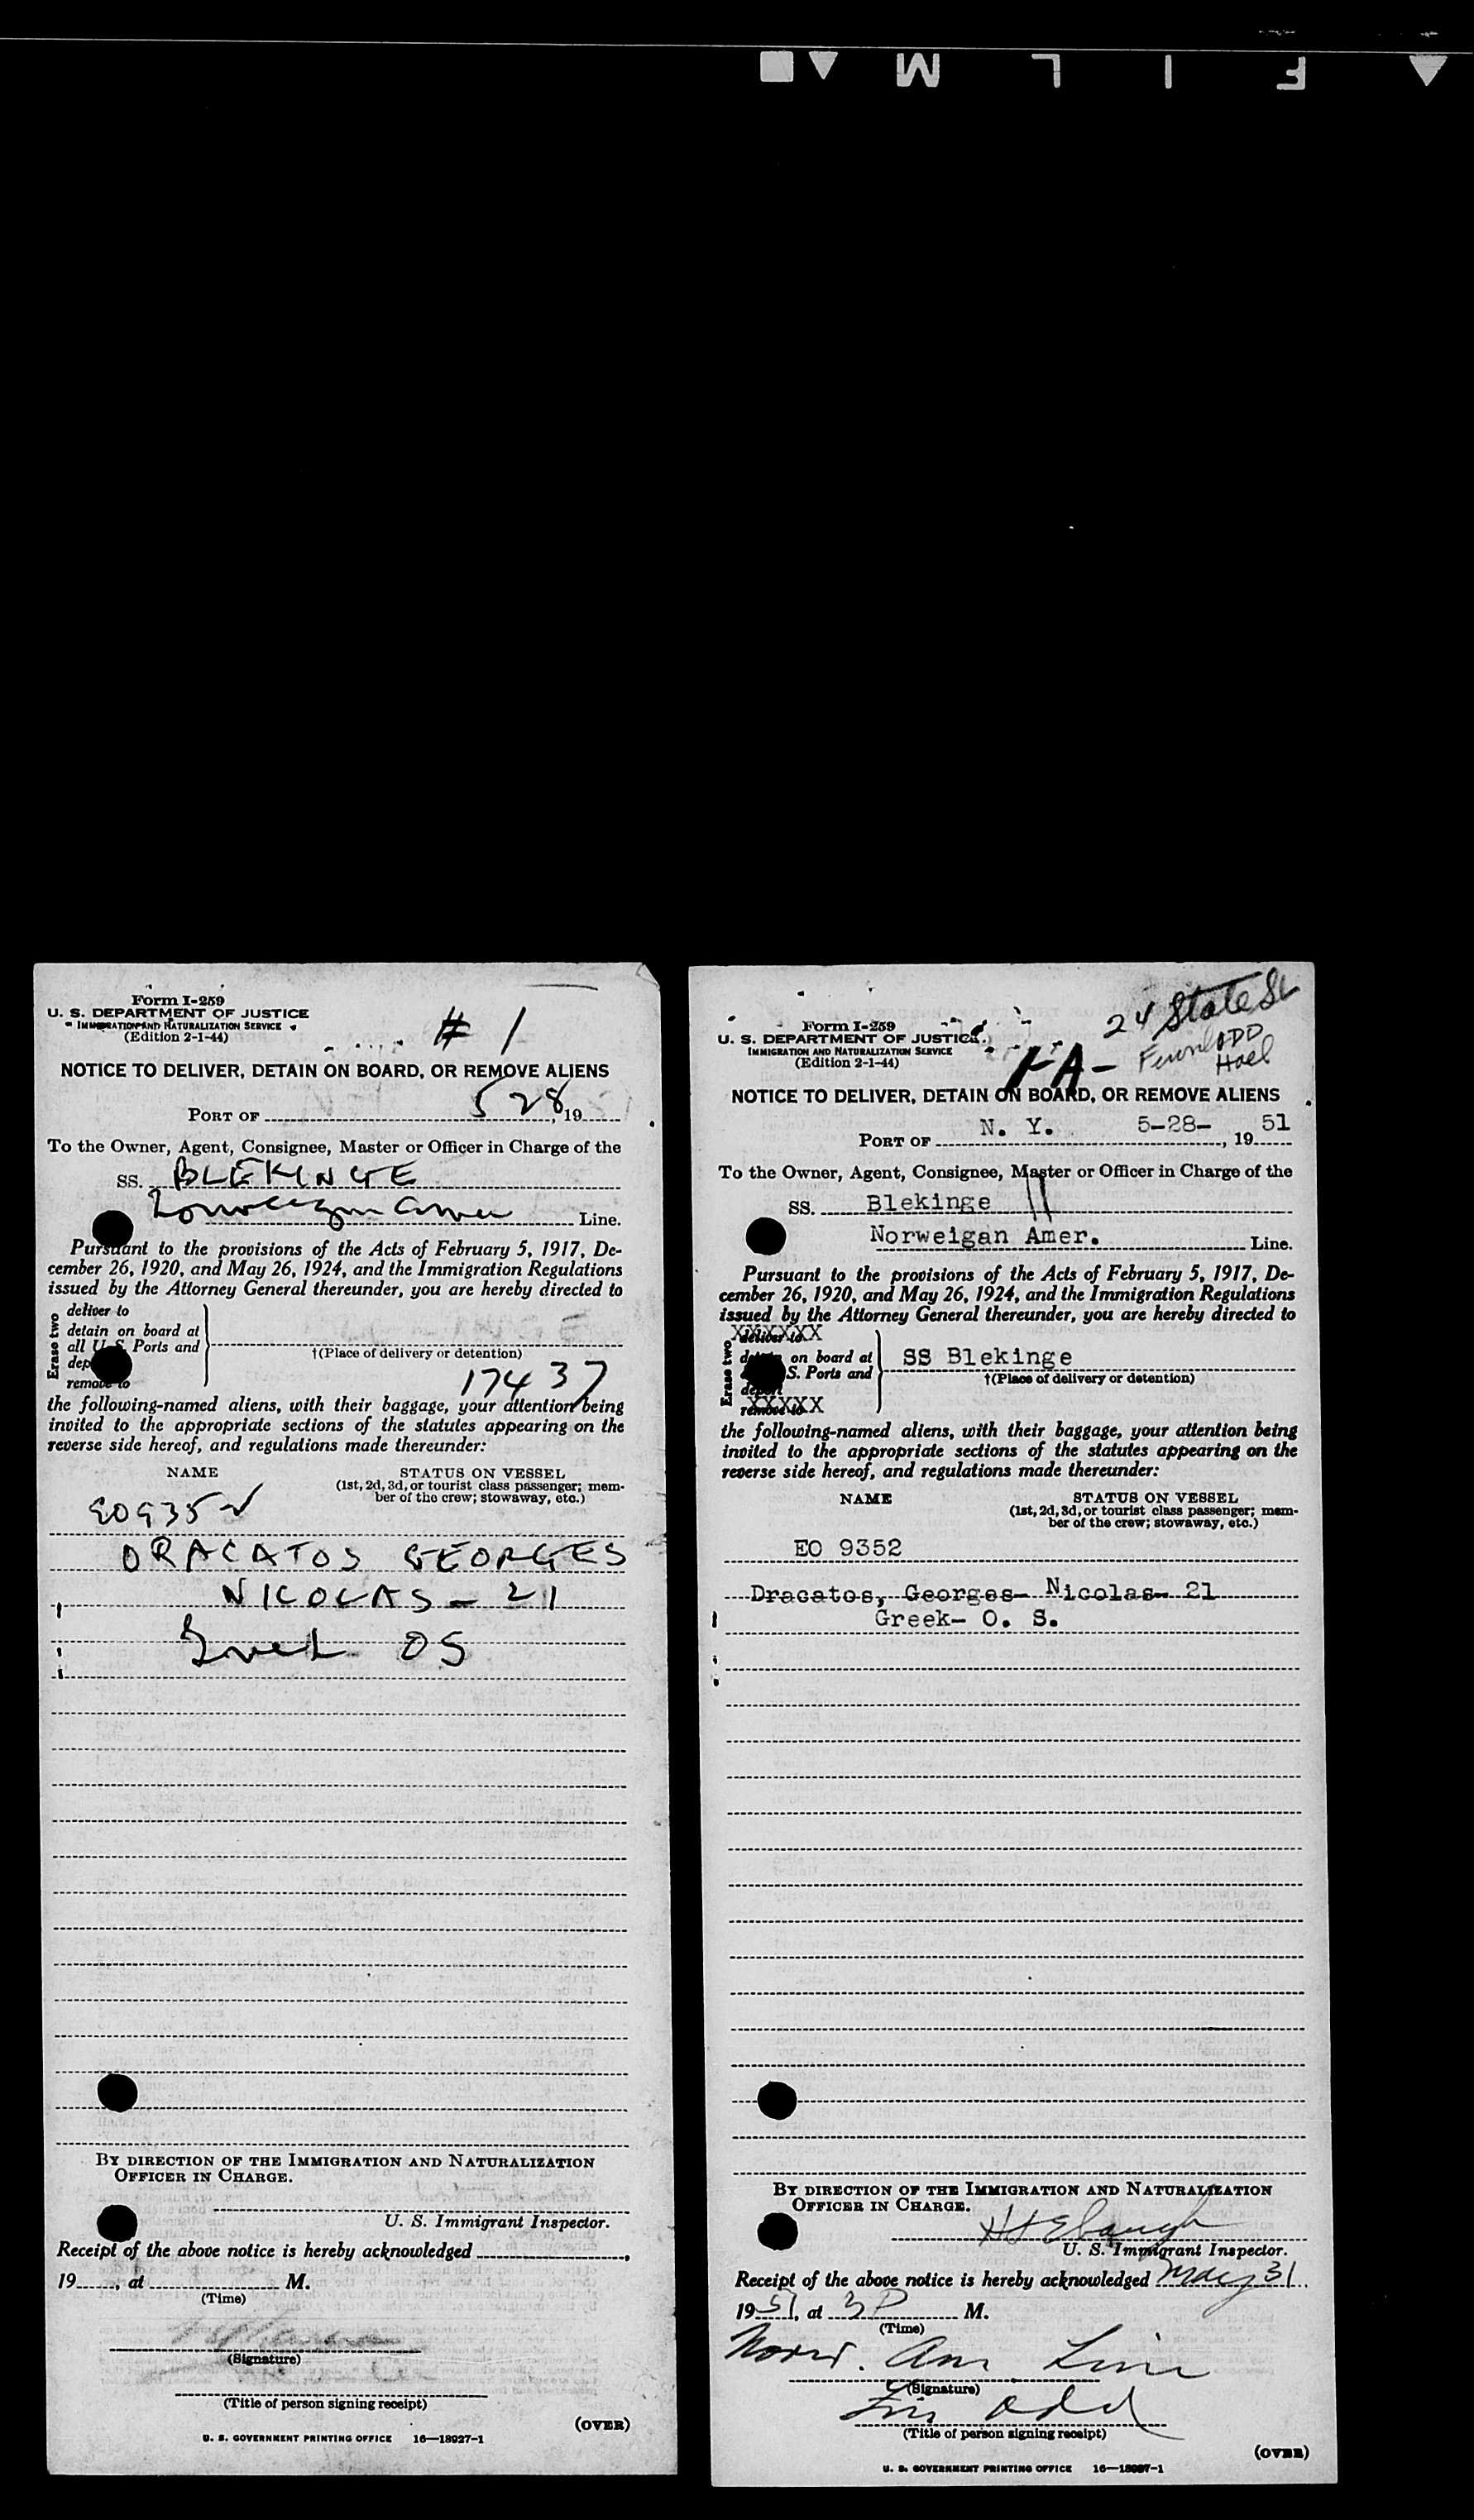 F I L M
Form I-259
U. S. DEPARTMENT OF JUSTICE
IMMIGRATION AND NATURALIZATION SERVICE
(Edition 2-1-44)
# 1
NOTICE TO DELIVER, DETAIN ON BOARD, OR REMOVE ALIENS
PORT OF 5 28, 19
To the Owner, Agent, Consignee, Master or Officer in Charge of the
SS. BLEKINGE
Norwegian Amer Line.
Pursuant to the provisions of the Acts of February 5, 1917, De-
cember 26, 1920, and May 26, 1924, and the Immigration Regulations
issued by the Attorney General thereunder, you are hereby directed to
Erase two
deliver to
detain on board at
all U. S. Ports and
dep
remove to
†(Place of delivery or detention)
17437
the following-named aliens, with their baggage, your attention being
invited to the appropriate sections of the statutes appearing on the
reverse side hereof, and regulations made thereunder:
NAME STATUS ON VESSEL
(1st, 2d, 3d, or tourist class passenger; mem-
ber of the crew; stowaway, etc.)
EO 9352
DRACATOS GEORGES
NICOLAS - 21
Greek OS
BY DIRECTION OF THE IMMIGRATION AND NATURALIZATION
OFFICER IN CHARGE.
U. S. Immigrant Inspector.
Receipt of the above notice is hereby acknowledged
19, at M.
(Time)
(Signature)
(Title of person signing receipt)
(OVER)
U. S. GOVERNMENT PRINTING OFFICE 16—18927-1
24 State St
ODD
Hoel
Form I-259
U. S. DEPARTMENT OF JUSTICE
IMMIGRATION AND NATURALIZATION SERVICE
(Edition 2-1-44)
NOTICE TO DELIVER, DETAIN ON BOARD, OR REMOVE ALIENS
PORT OF N. Y. 5-28-, 1951
To the Owner, Agent, Consignee, Master or Officer in Charge of the
SS. Blekinge
Norweigan Amer. Line.
Pursuant to the provisions of the Acts of February 5, 1917, De-
cember 26, 1920, and May 26, 1924, and the Immigration Regulations
issued by the Attorney General thereunder, you are hereby directed to
Erase two
XXXXXXX
deliver to
on board at
S. Ports and
deport
XXXXX
remove to
SS Blekinge
†(Place of delivery or detention)
the following-named aliens, with their baggage, your attention being
invited to the appropriate sections of the statutes appearing on the
reverse side hereof, and regulations made thereunder:
NAME STATUS ON VESSEL
(1st, 2d, 3d, or tourist class passenger; mem-
ber of the crew; stowaway, etc.)
EO 9352
Dracatos, Georges- Nicolas- 21
Greek- O. S.
BY DIRECTION OF THE IMMIGRATION AND NATURALIZATION
OFFICER IN CHARGE.
U. S. Immigrant Inspector.
Receipt of the above notice is hereby acknowledged May 31
1951, at 3 P M.
(Time)
Norw. Am Line
(Signature)
(Title of person signing receipt)
(OVER)
U. S. GOVERNMENT PRINTING OFFICE 16—18927-1